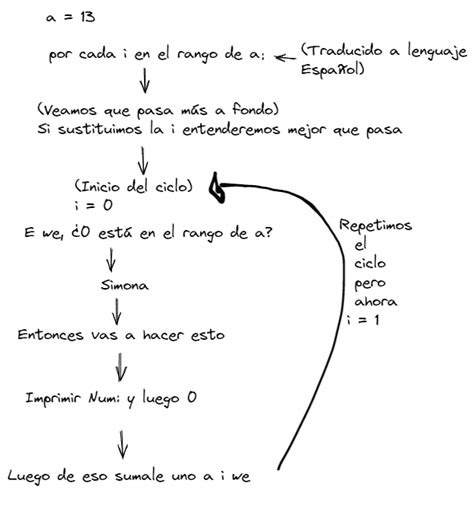 a = 13
por cada i en el rango de a: (Traducido a lenguaje
Español)
(Veamos que pasa más a fondo)
Si sustituimos la i entenderemos mejor que pasa
(Inicio del ciclo)
i = 0
E we, ¿0 está en el rango de a?
Simona
Entonces vas a hacer esto
Imprimir Num: y luego 0
Luego de eso sumale uno a i we
Repetimos
el
ciclo
pero
ahora
i = 1